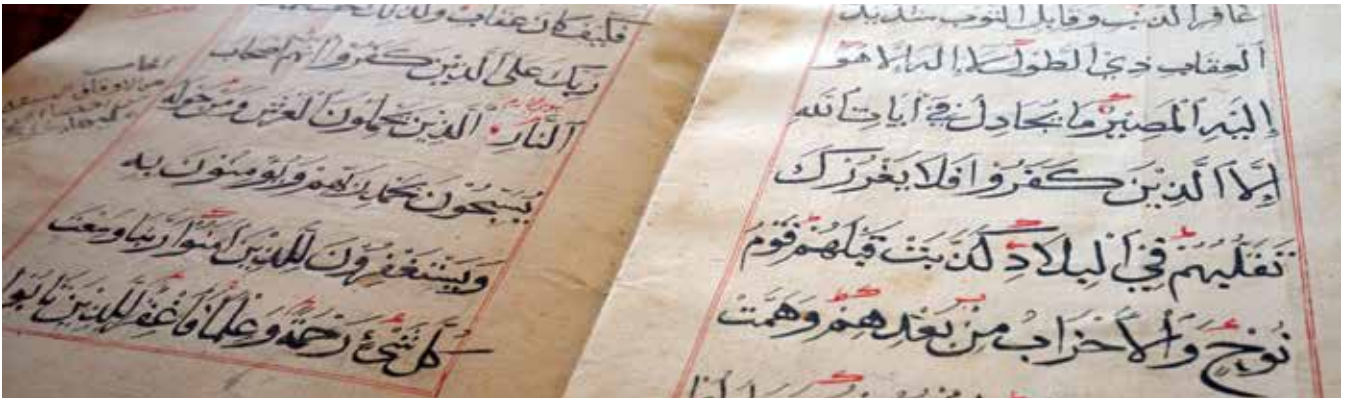 غافر الذنب وقابل التوب شديد
العقاب ذي الطول لا إله إلا هو
إليه المصير ما يجادل في آيات الله
إلا الذين كفروا فلا يغررك
تقلبهم في البلاد كذبت قبلهم قوم
نوح والأحزاب من بعدهم وهمت
فكيف كان عقاب وكذلك
ربك على الذين كفروا أنهم أصحاب
النار الذين يحملون العرش ومن حوله
يسبحون بحمد ربهم ويؤمنون به
ويستغفرون للذين آمنوا ربنا وسعت
كل شيء رحمة وعلما فاغفر للذين تابوا